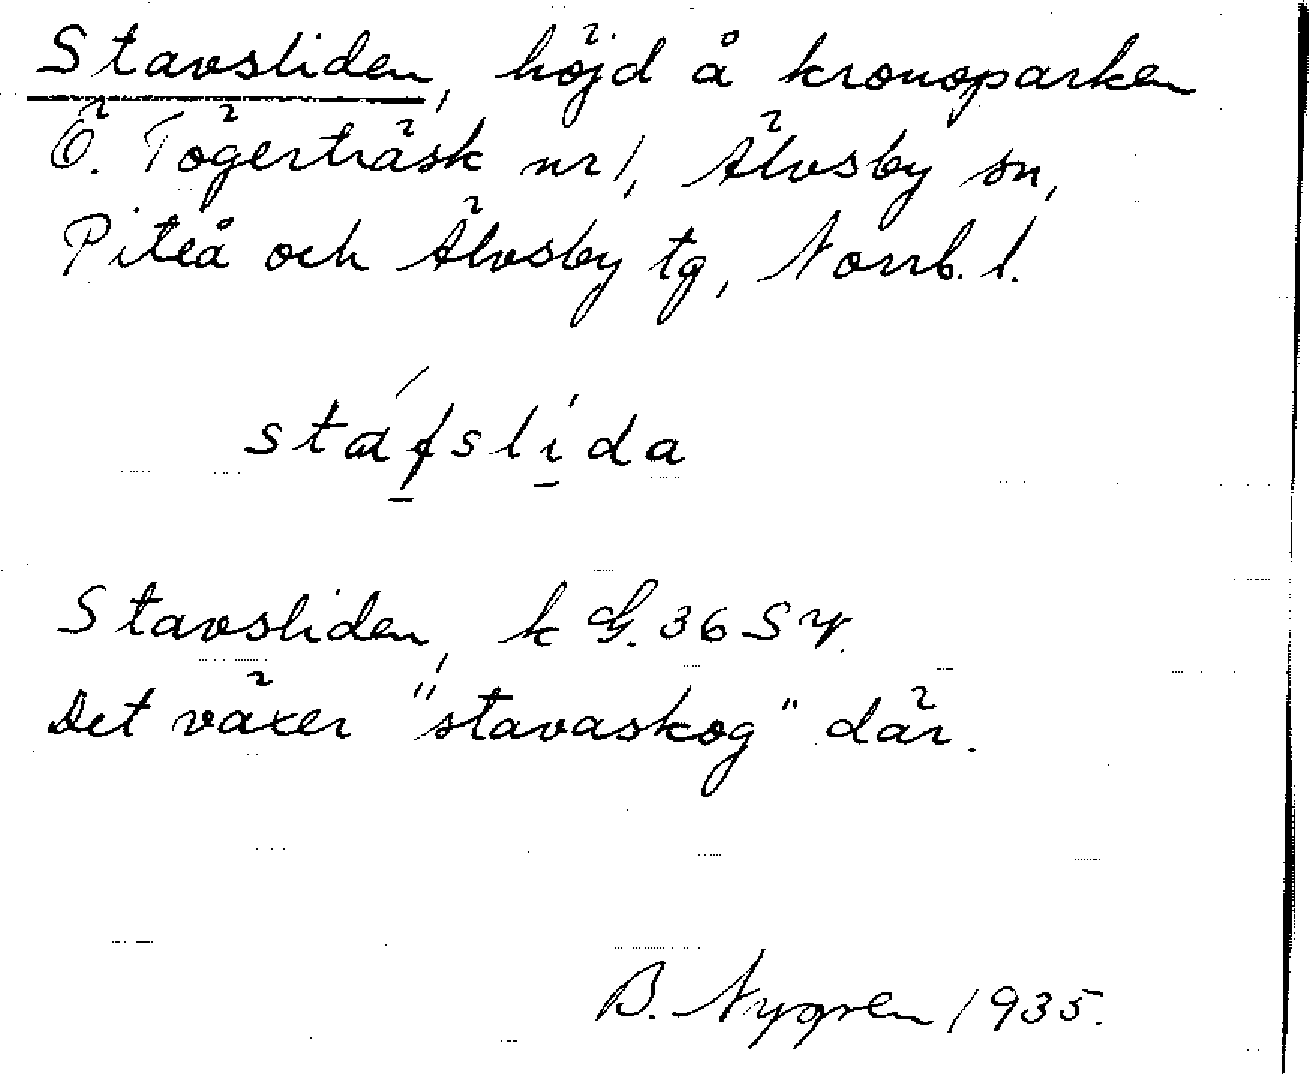 Stavsliden, höjd å kronoparken
Ö. Tögerträsk nr 1, Älvsby sn,
Piteå och Älvsby tg, Norrb. l.
stáfslída
Stavsliden, k G. 36 SV.
Det växer "stavaskog" där.
B. Nygren 1935.